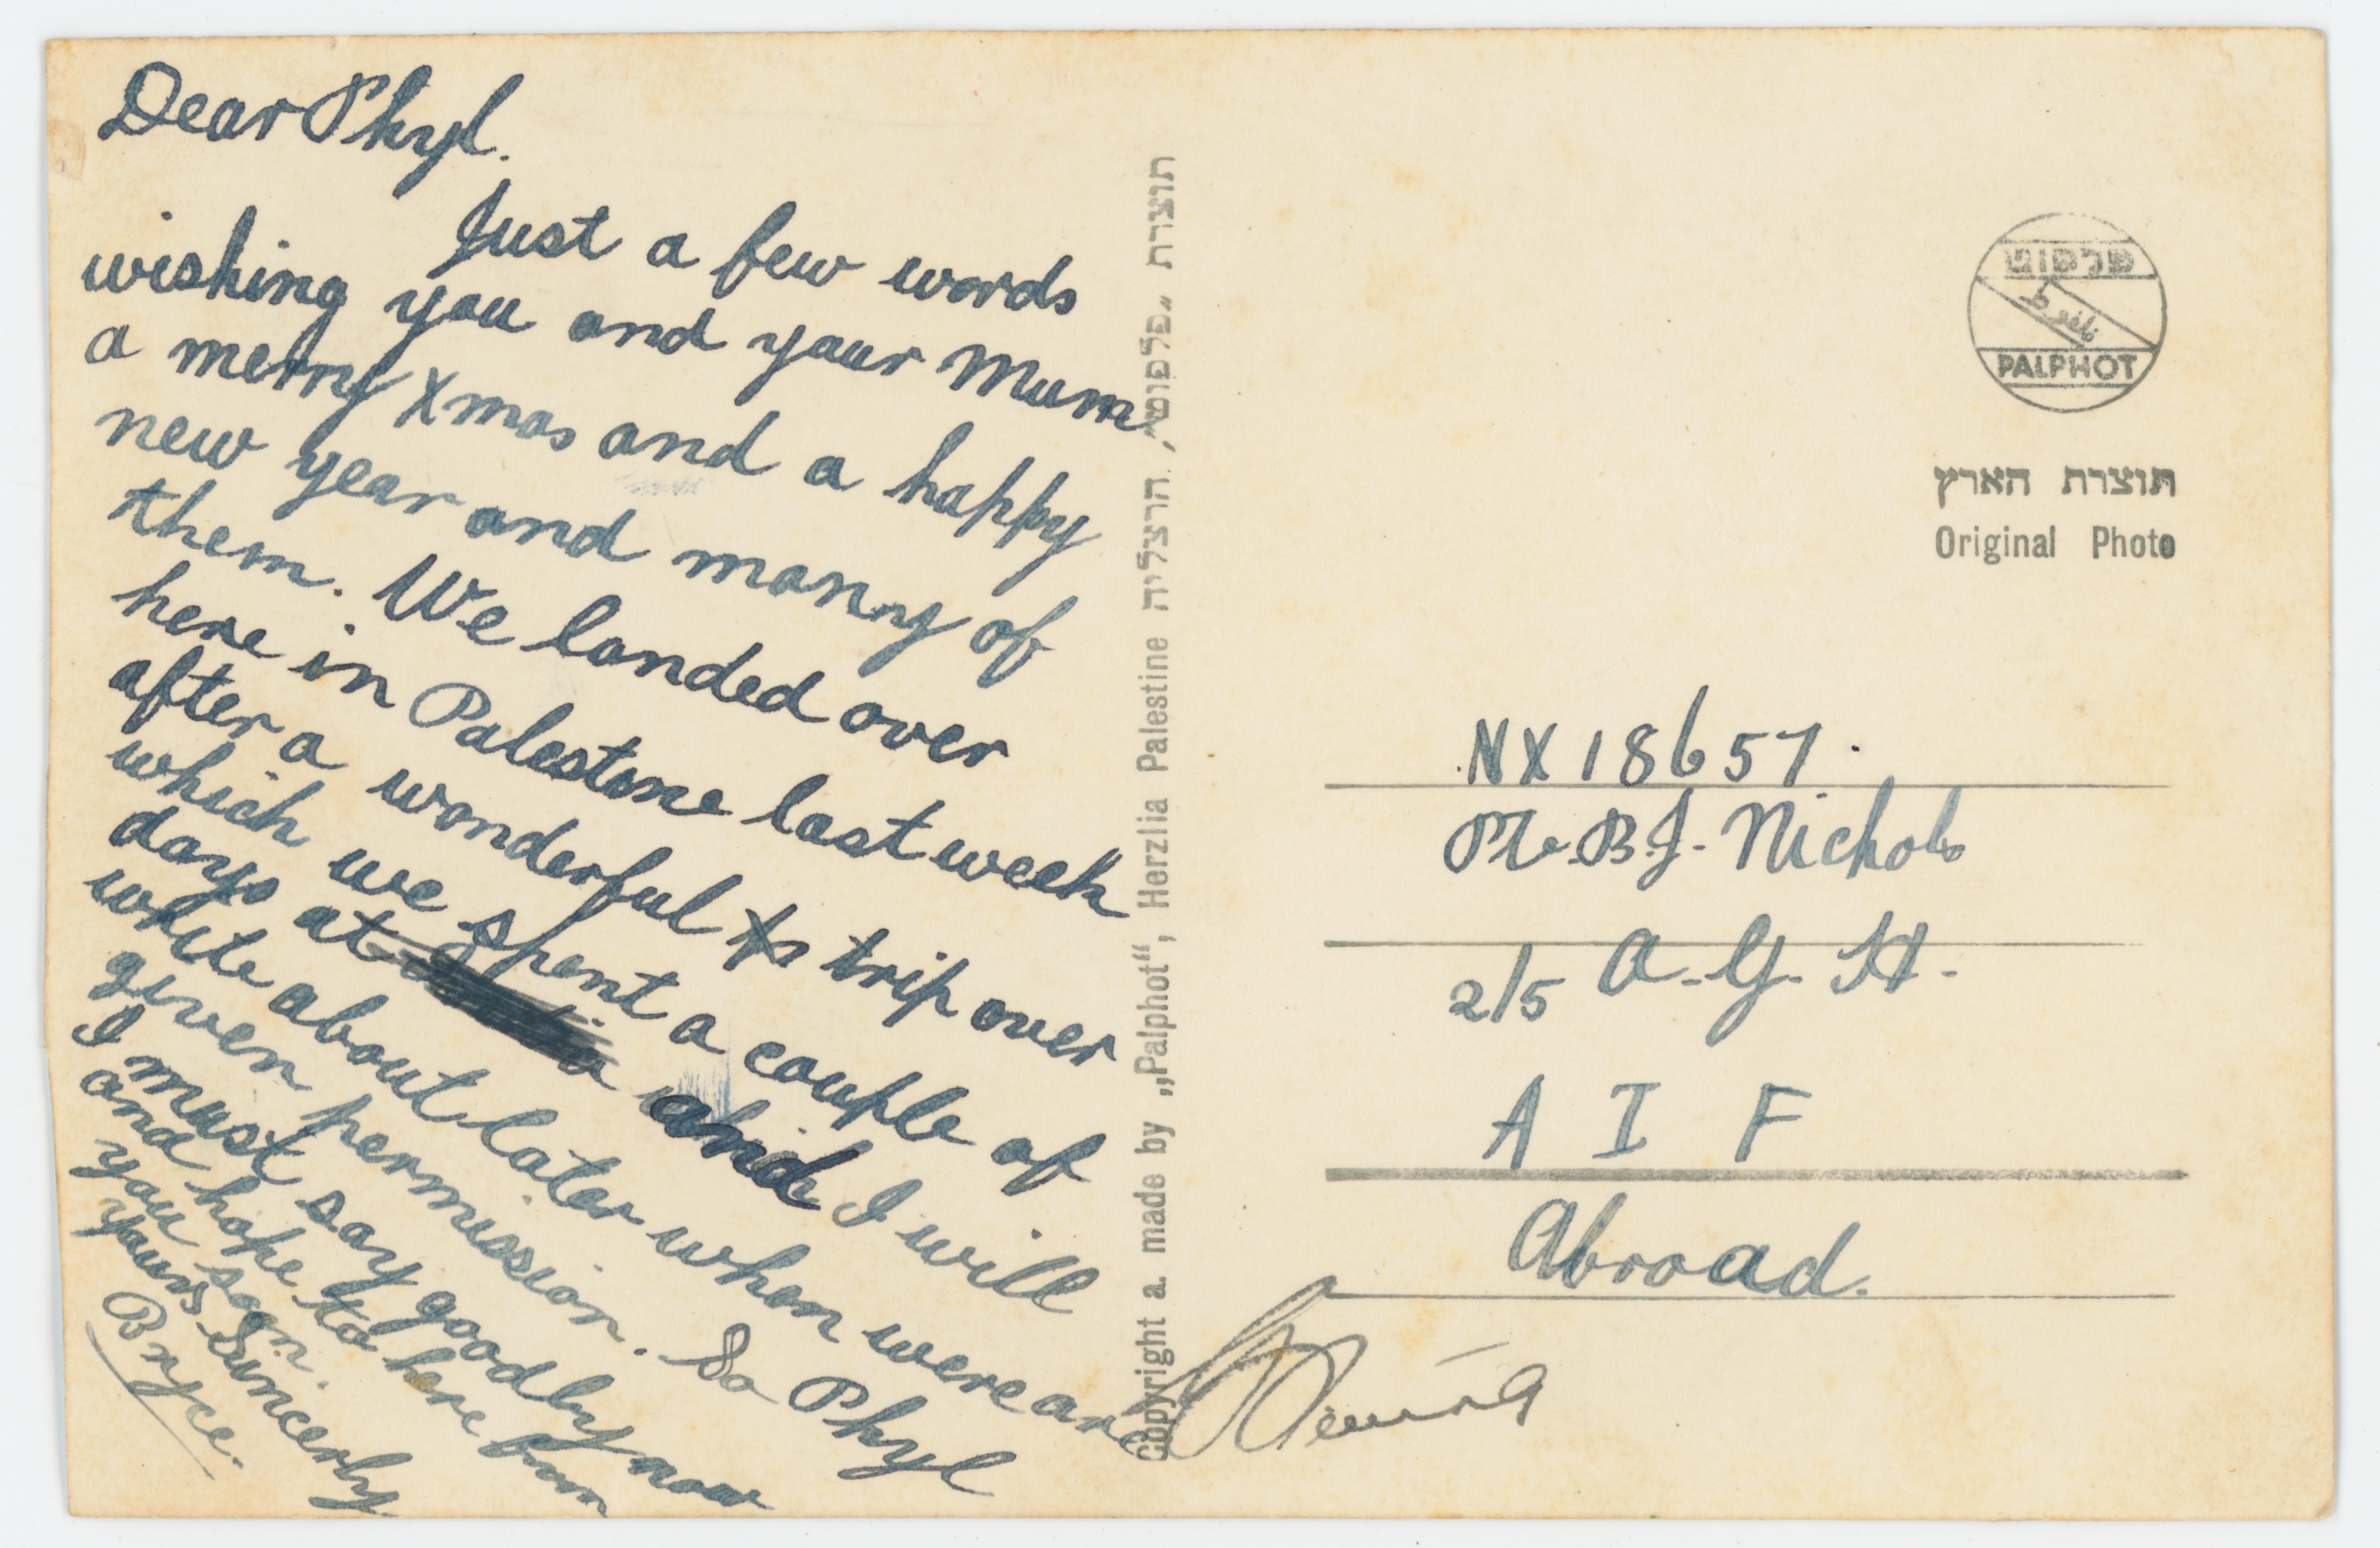 Dear Phyl.
Just a few words
wishing you and your Mum
a merry Xmas and a happy
new year and many of
them. We landed over
here in Palestine last week
after a wonderful trip over
which we spent a couple of
days at and I will
write about later when were are
given permission. So Phyl
I must say goodby now
and hope to here from
you soon.
yours Suncerly
Bryce.
Copyright a. made by „Palphot“, Herzlia Palestine תוצרת „פלפוט“, הרצליה
פלפוט
بالفوط
PALPHOT
תוצרת הארץ
Original Photo
NX 18657.
Pte. B.J. Nichols
2/5 A.G.H.
A I F
Abroad.